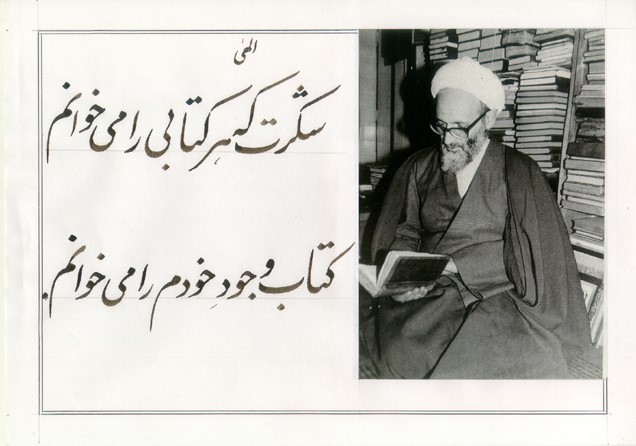 الهی
شکرت که هر کتابی را می خوانم
کتاب وجود خودم را می خوانم.